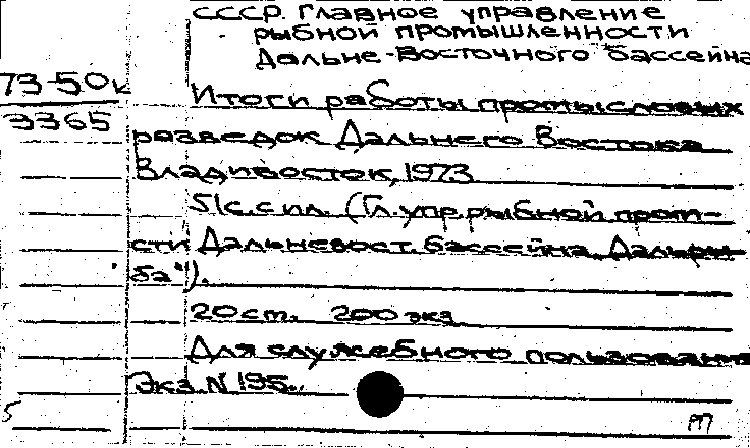 СССР. Главное управление
рыбной промышленности
Дальне-Восточного бассейна
73-50к
3365
Итоги работы промысловых
разведок Дальнего Востока
Владивосток, 1973
51с. с ил. (Гл. упр. рыбной пром-
сти Дальневост. бассейна "Дальры-
ба").
20 ст. 200 экз
Для служебного пользования
Экз. N 195.
5